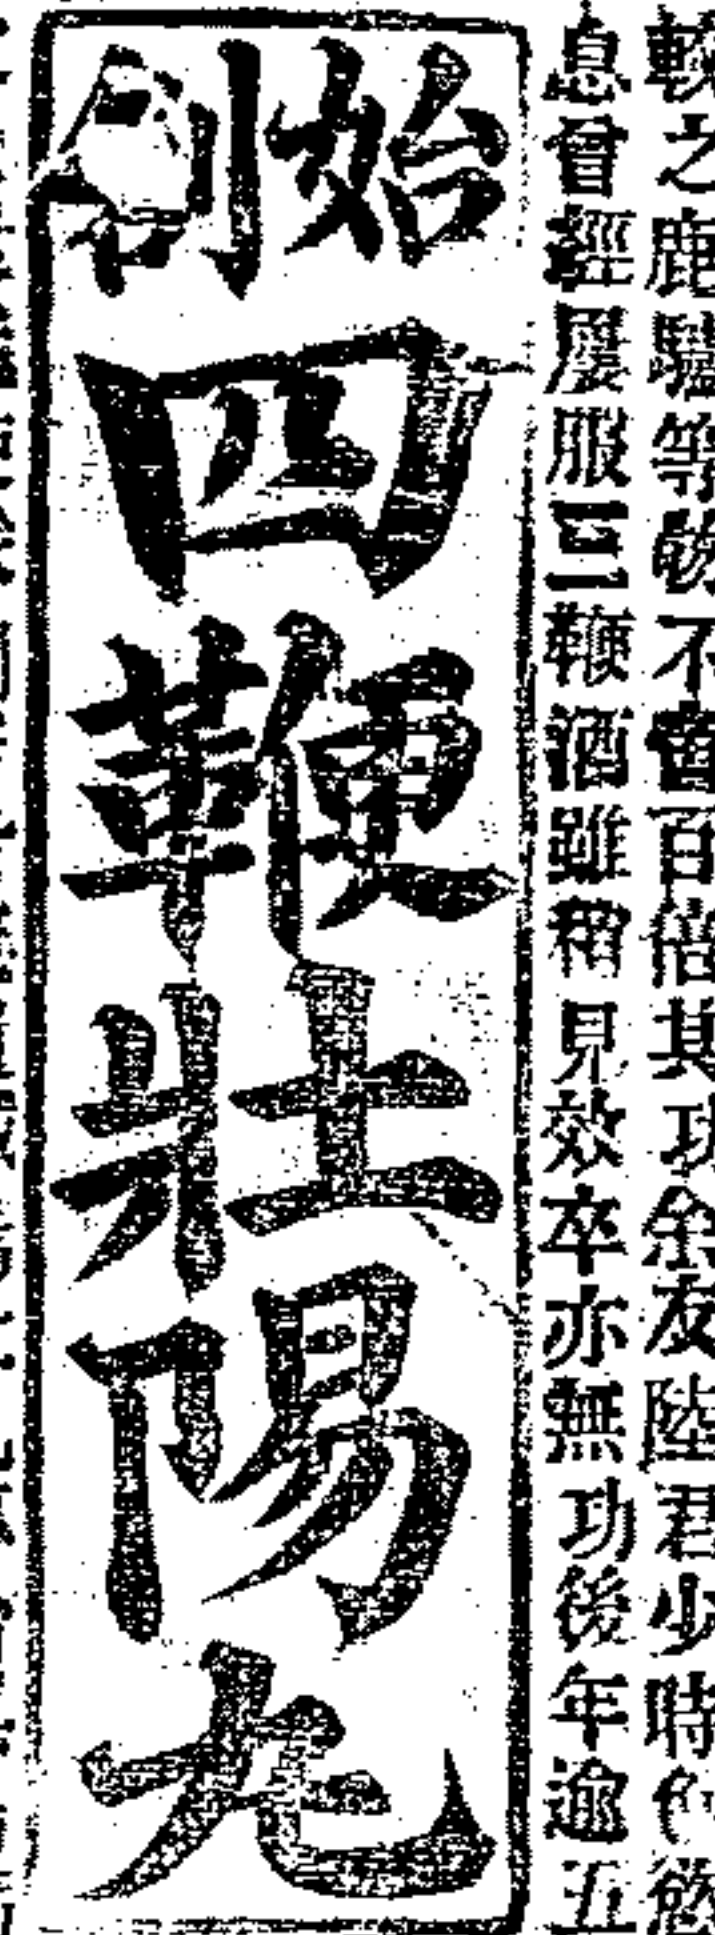 較之鹿驢等物不啻百倍其功余友陸君少時色慾
息曾經屢服三鞭酒雖稍見效卒亦無功後年逾五
始創
四鞭壯陽丸